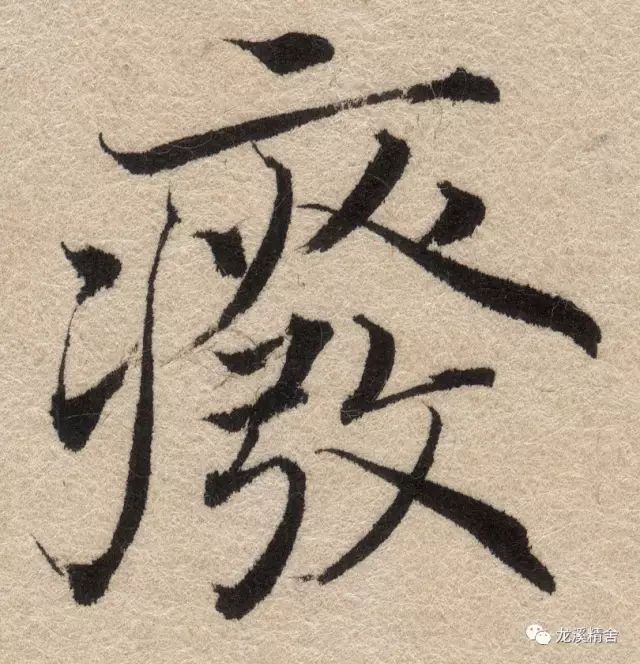 癈
龙溪精舍